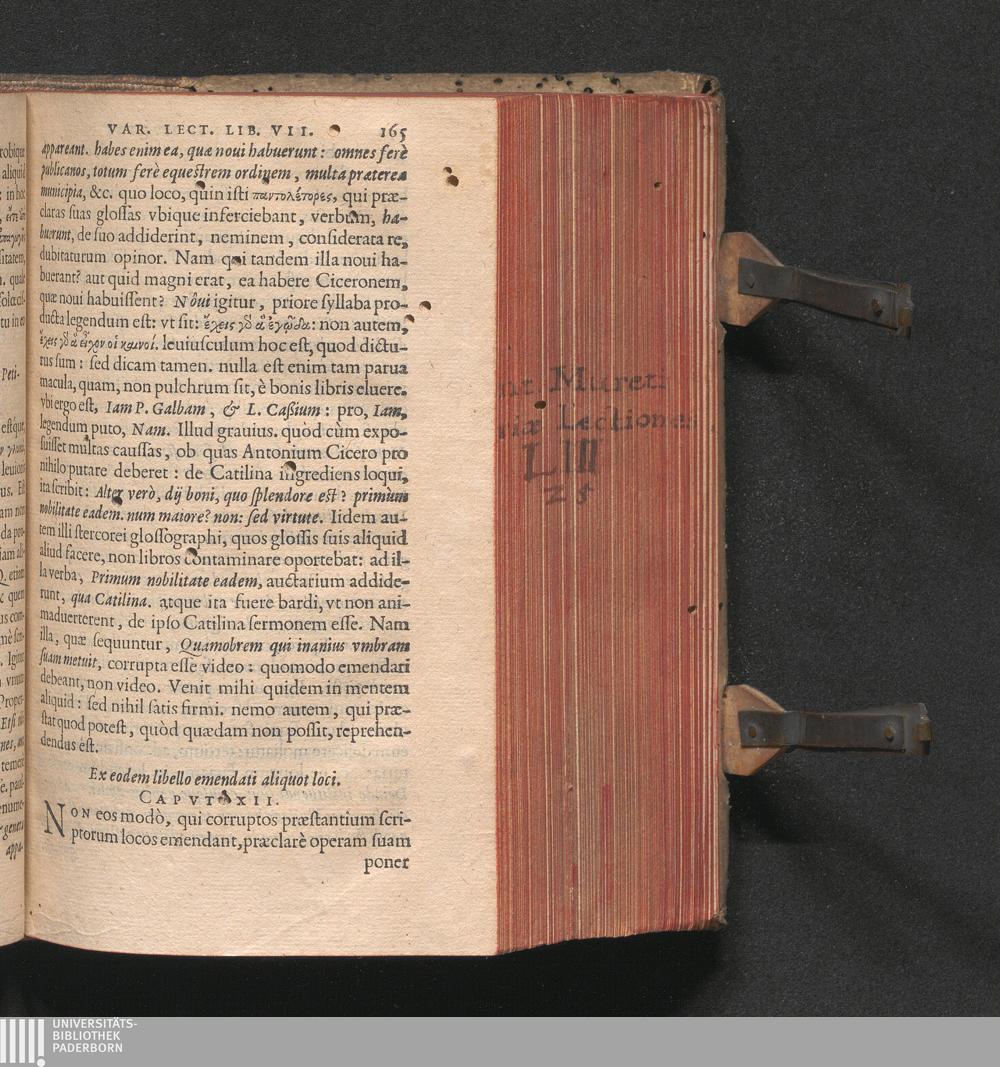 VAR. LECT. LIB. VII. 165
appareant. habes enim ea, quæ noui habuerunt: omnes ferè
publicanos, totum ferè equeſtrem ordinem, multa præterea
municipia, &c. quo loco, quin iſti παντολέτορες, qui præ-
claras ſuas gloſſas vbique inferciebant, verbum, ha-
buerunt, de ſuo addiderint, neminem, conſiderata re,
dubitaturum opinor. Nam qui tandem illa noui ha-
buerant? aut quid magni erat, ea habere Ciceronem,
quæ noui habuiſſent? Nôui igitur, priore ſyllaba pro-
ducta legendum eſt: vt ſit: ἔχεις γὸ ἃ ἐγᾦδα: non autem,
ἔχεις γὸ ἃ εἶχον οἱ καινοί. leuiuſculum hoc eſt, quod dictu-
rus ſum: ſed dicam tamen. nulla eſt enim tam parua
macula, quam, non pulchrum ſit, è bonis libris eluere.
vbi ergo eſt, Iam P. Galbam, & L. Caßium: pro, Iam,
legendum puto, Nam. Illud grauius. quòd cùm expo-
ſuiſſet multas cauſſas, ob quas Antonium Cicero pro
nihilo putare deberet: de Catilina ingrediens loqui,
ita ſcribit: Alter verò, dij boni, quo ſplendore eſt? primùm
nobilitate eadem. num maiore? non: ſed virtute. Iidem au-
tem illi ſtercorei gloſſographi, quos gloſſis ſuis aliquid
aliud facere, non libros contaminare oportebat: ad il-
la verba, Primum nobilitate eadem, auctarium addide-
runt, qua Catilina. atque ita fuere bardi, vt non ani-
maduerterent, de ipſo Catilina ſermonem eſſe. Nam
illa, quæ ſequuntur, Quamobrem qui inanius vmbram
ſuam metuit, corrupta eſſe video: quomodo emendari
debeant, non video. Venit mihi quidem in mentem
aliquid: ſed nihil ſatis firmi. nemo autem, qui præ-
ſtat quod poteſt, quòd quædam non poſſit, reprehen-
dendus eſt.
Ex eodem libello emendati aliquot loci.
CAPVT XII.
NON eos modò, qui corruptos præſtantium ſcri-
ptorum locos emendant, præclarè operam ſuam
poner
nt Mureti
riæ Lectiones
LIII
25
UNIVERSITÄTS-
BIBLIOTHEK
PADERBORN